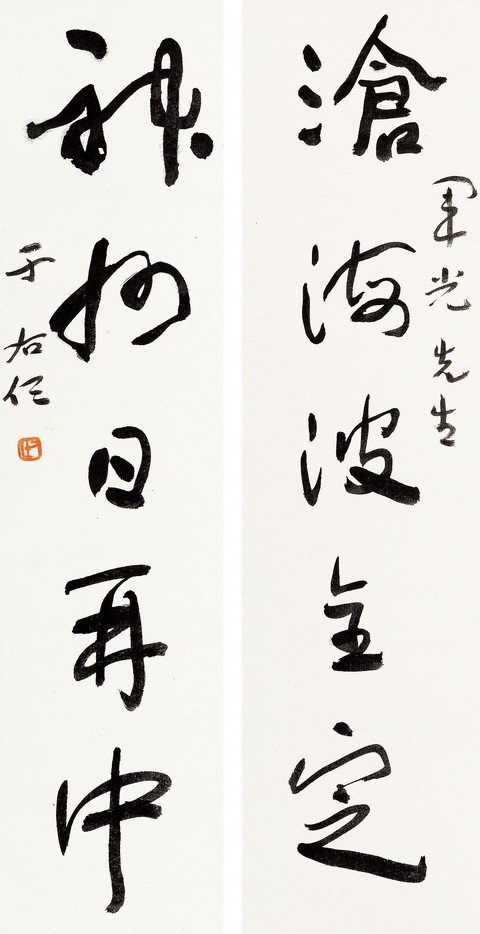 軍光先生
滄海波全定
神州日再中
于右任